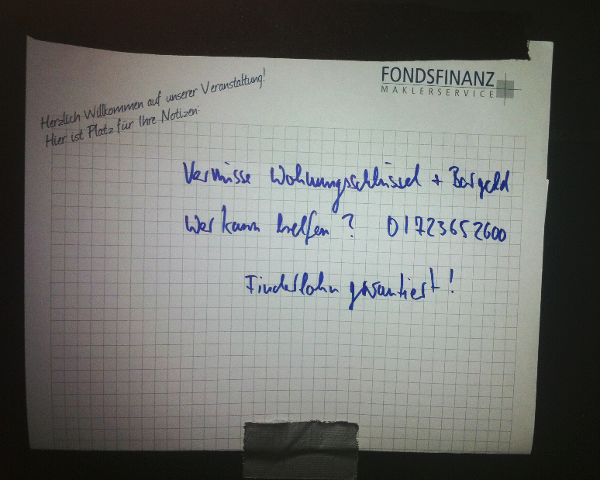 FONDSFINANZ
MAKLERSERVICE
Herzlich Willkommen auf unserer Veranstaltung!
Hier ist Platz für Ihre Notizen:
Vermisse Wohnungsschlüssel + Bargeld
Wer kann helfen? 01723652600
Finderlohn garantiert!